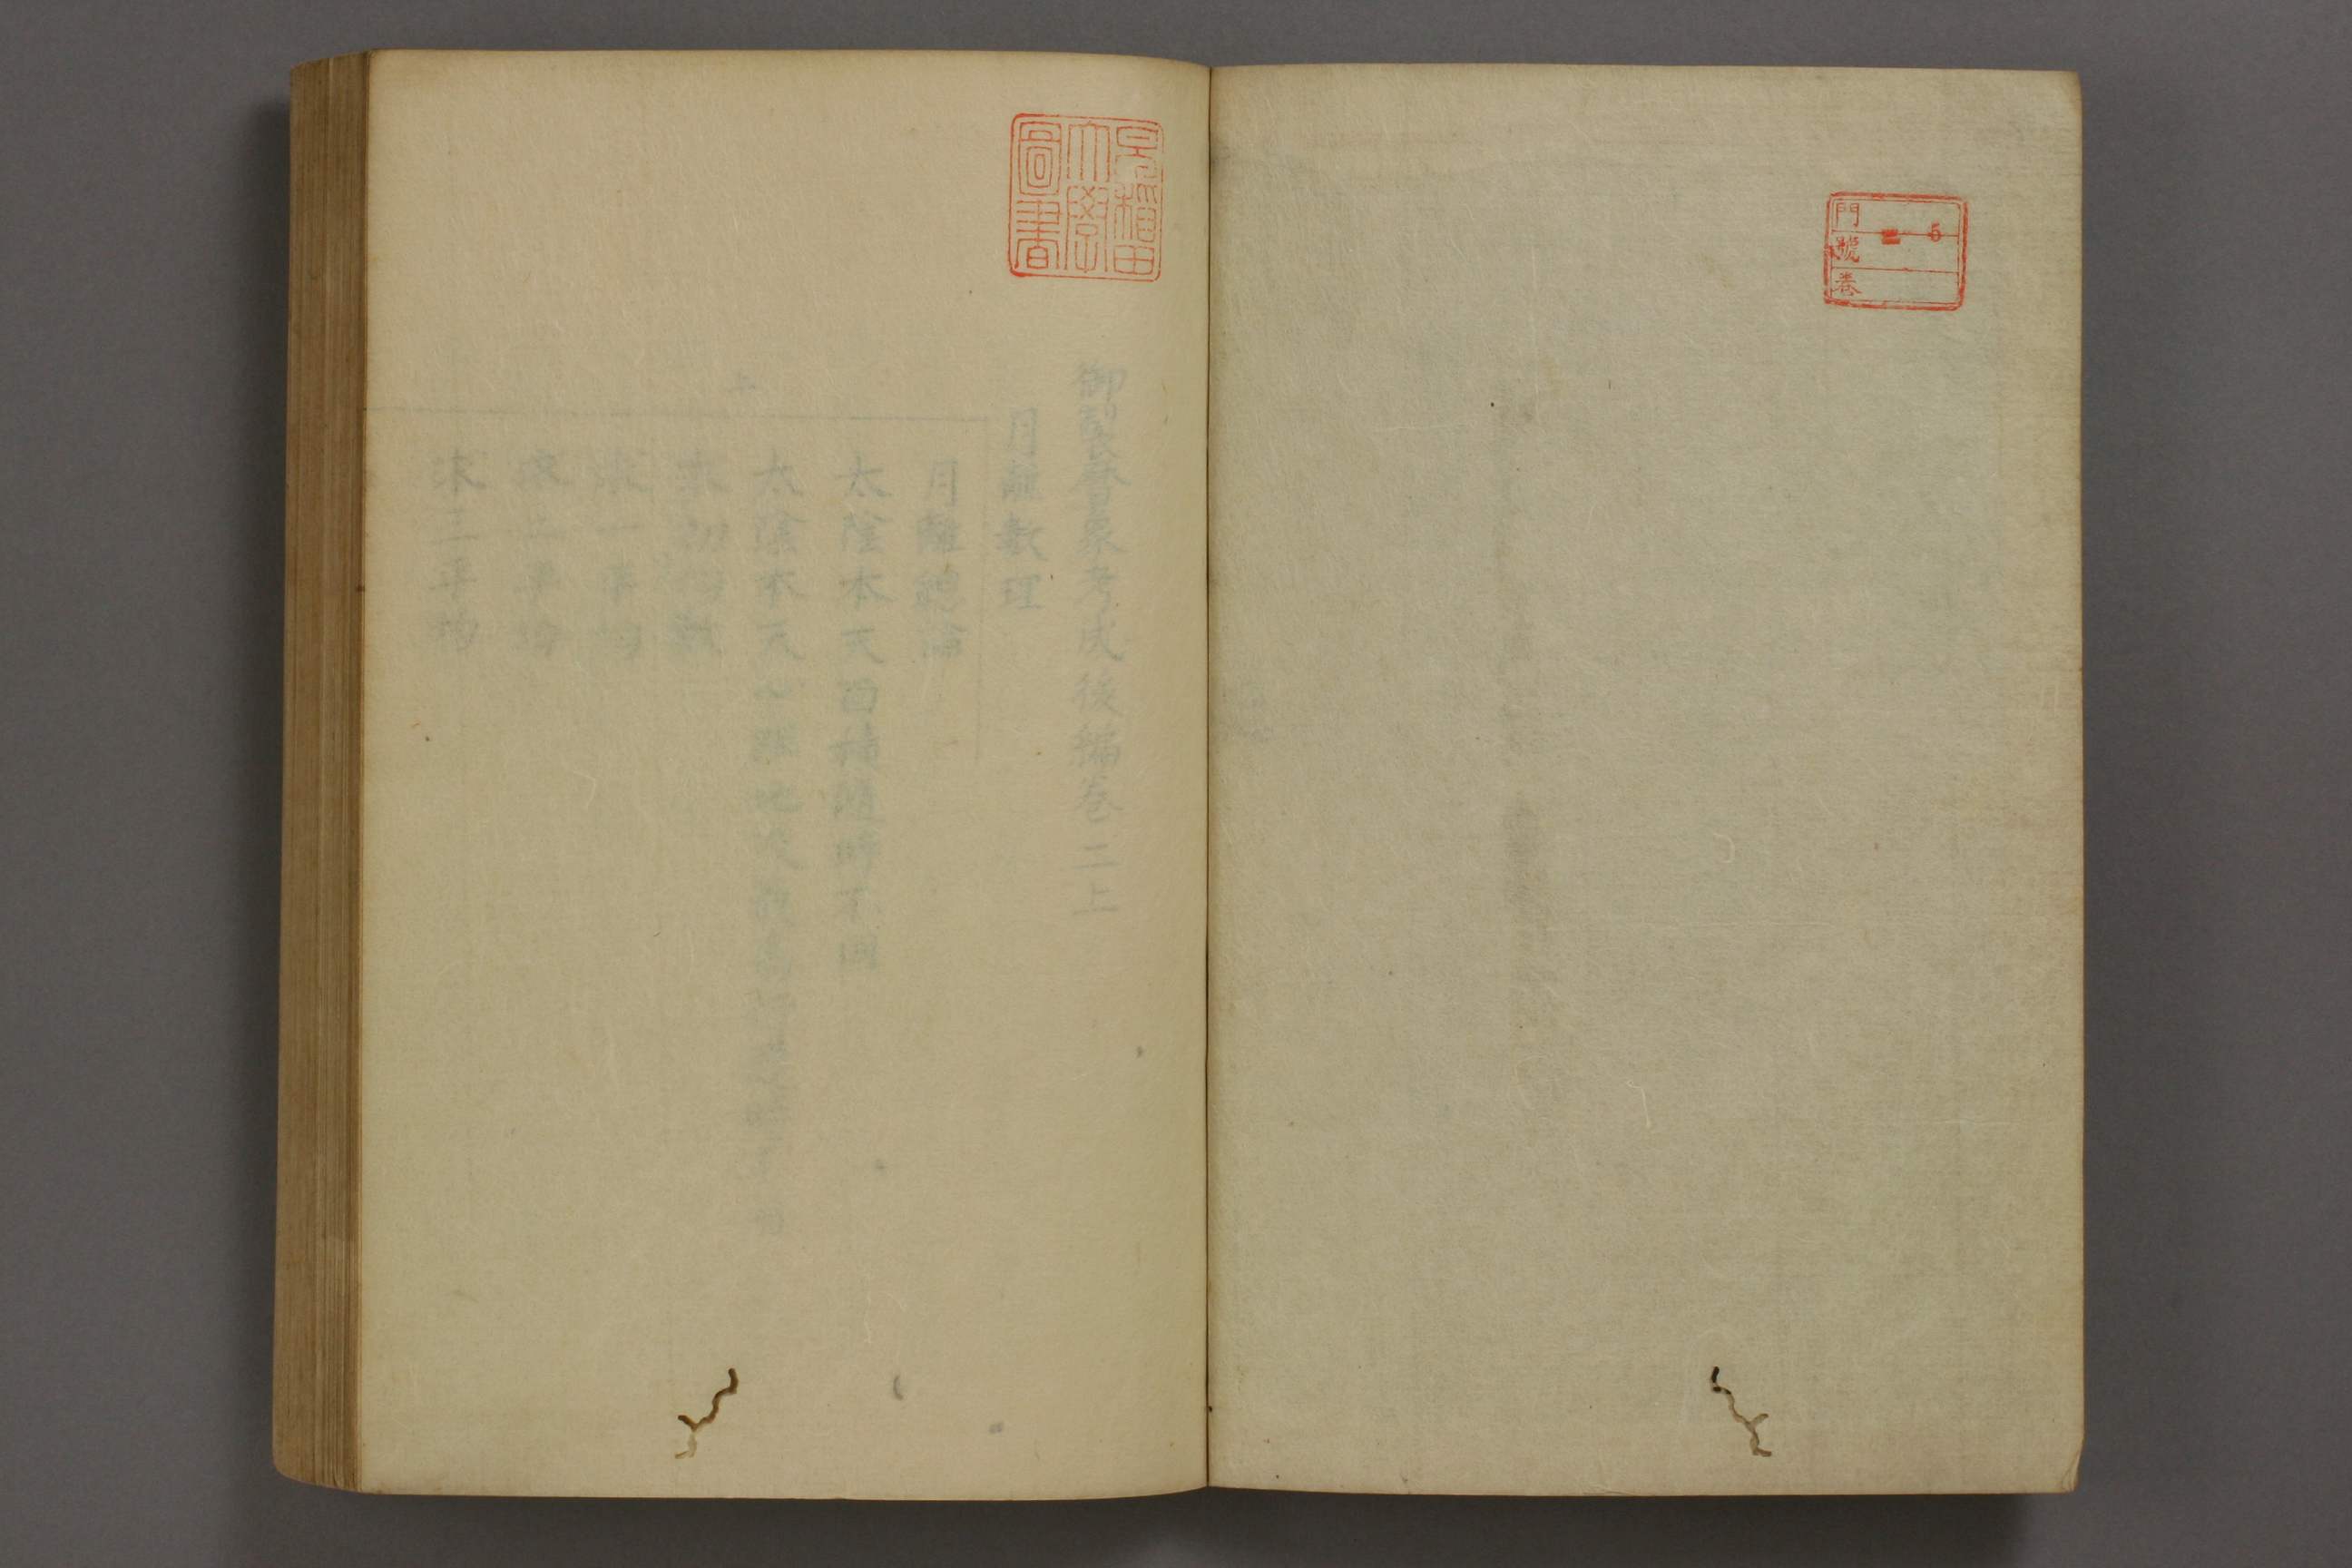 門
號
卷
5
早稲田
大學
圖書
御製曆象考成後編卷二上
月離數理
月離總論
太陰本天面積隨時不同
太陰本天心距地及最高行隨時不同
求初均數
求一平均
求二平均
求三平均